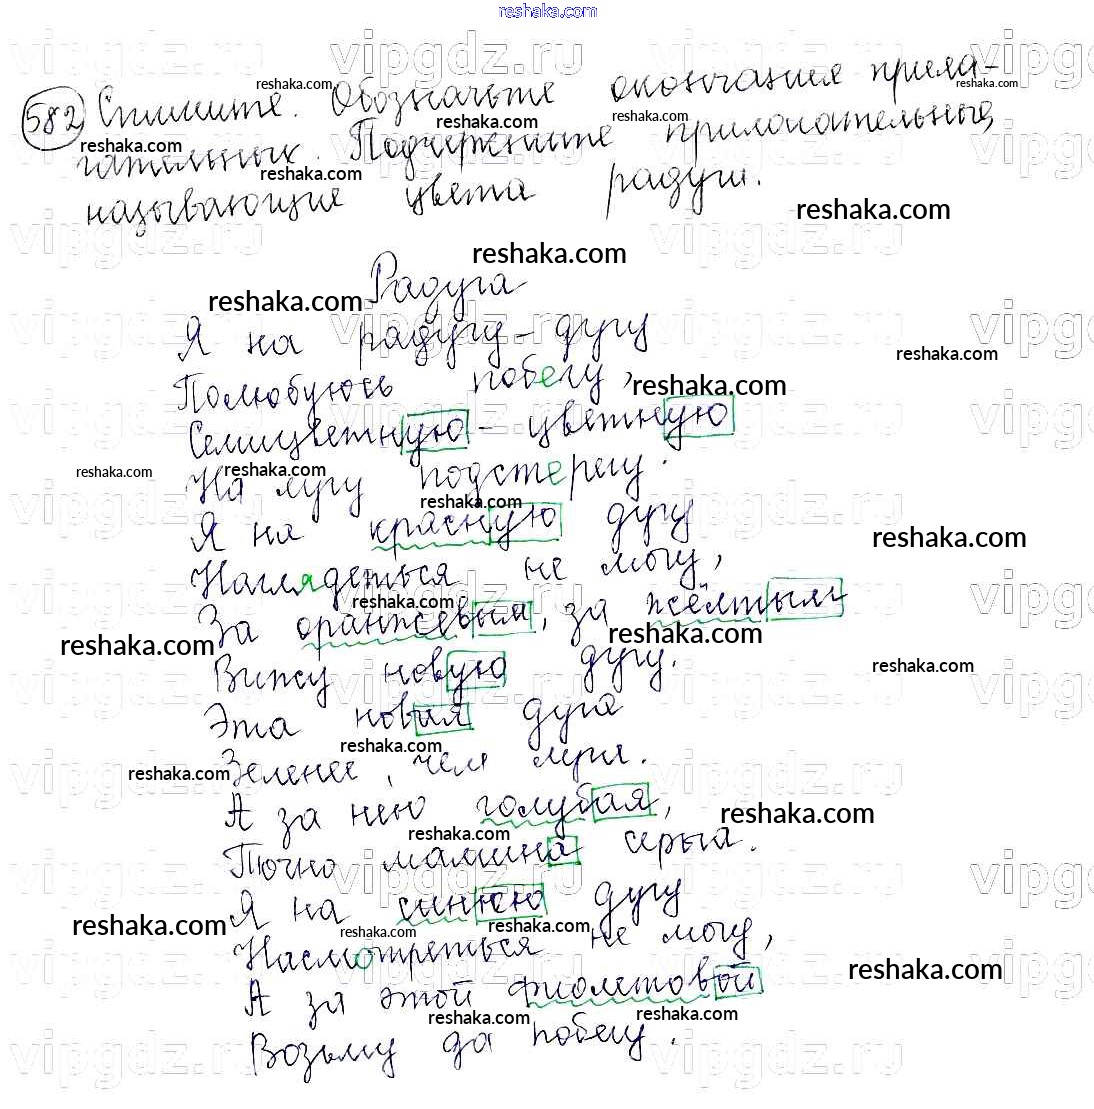 reshaka.com
582 Спишите. Обозначьте окончания прила-
гательных. Подчеркните прилагательные,
называющие цвета радуги.
Радуга
Я на радугу-дугу
Полюбуюсь побегу,
Семицветную-цветную
На лугу подстерегу.
Я на красную дугу
Наглядеться не могу,
За оранжевым, за жёлтым
Вижу новую дугу.
Эта новая дуга
Зеленее, чем луга.
А за нею голубая,
Точно мамина серьга.
Я на синюю дугу
Насмотреться не могу,
А за этой фиолетовой
Возьму да побегу.